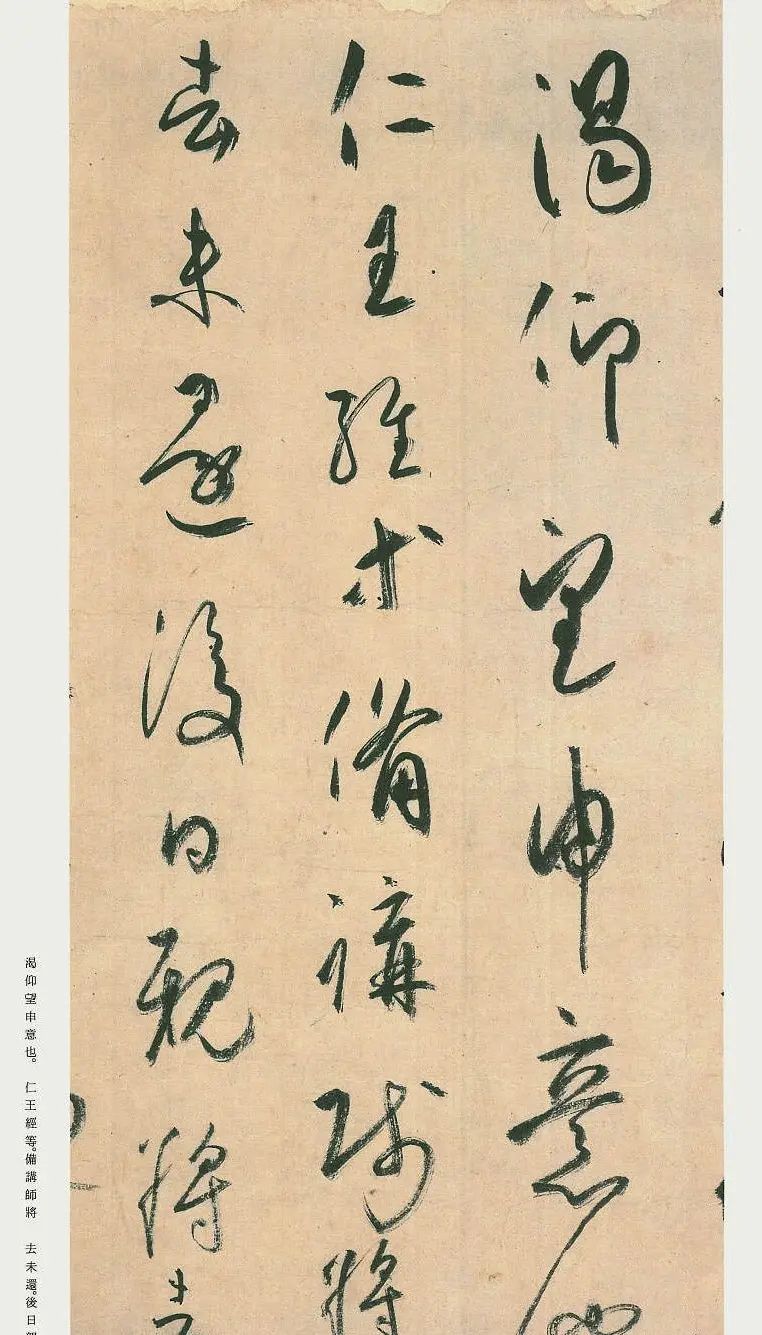 渴仰望申意也
仁王經等備講師將
去未還後日親將去
渴仰望申意也。 仁王經等。備講師將 去未還。後日親